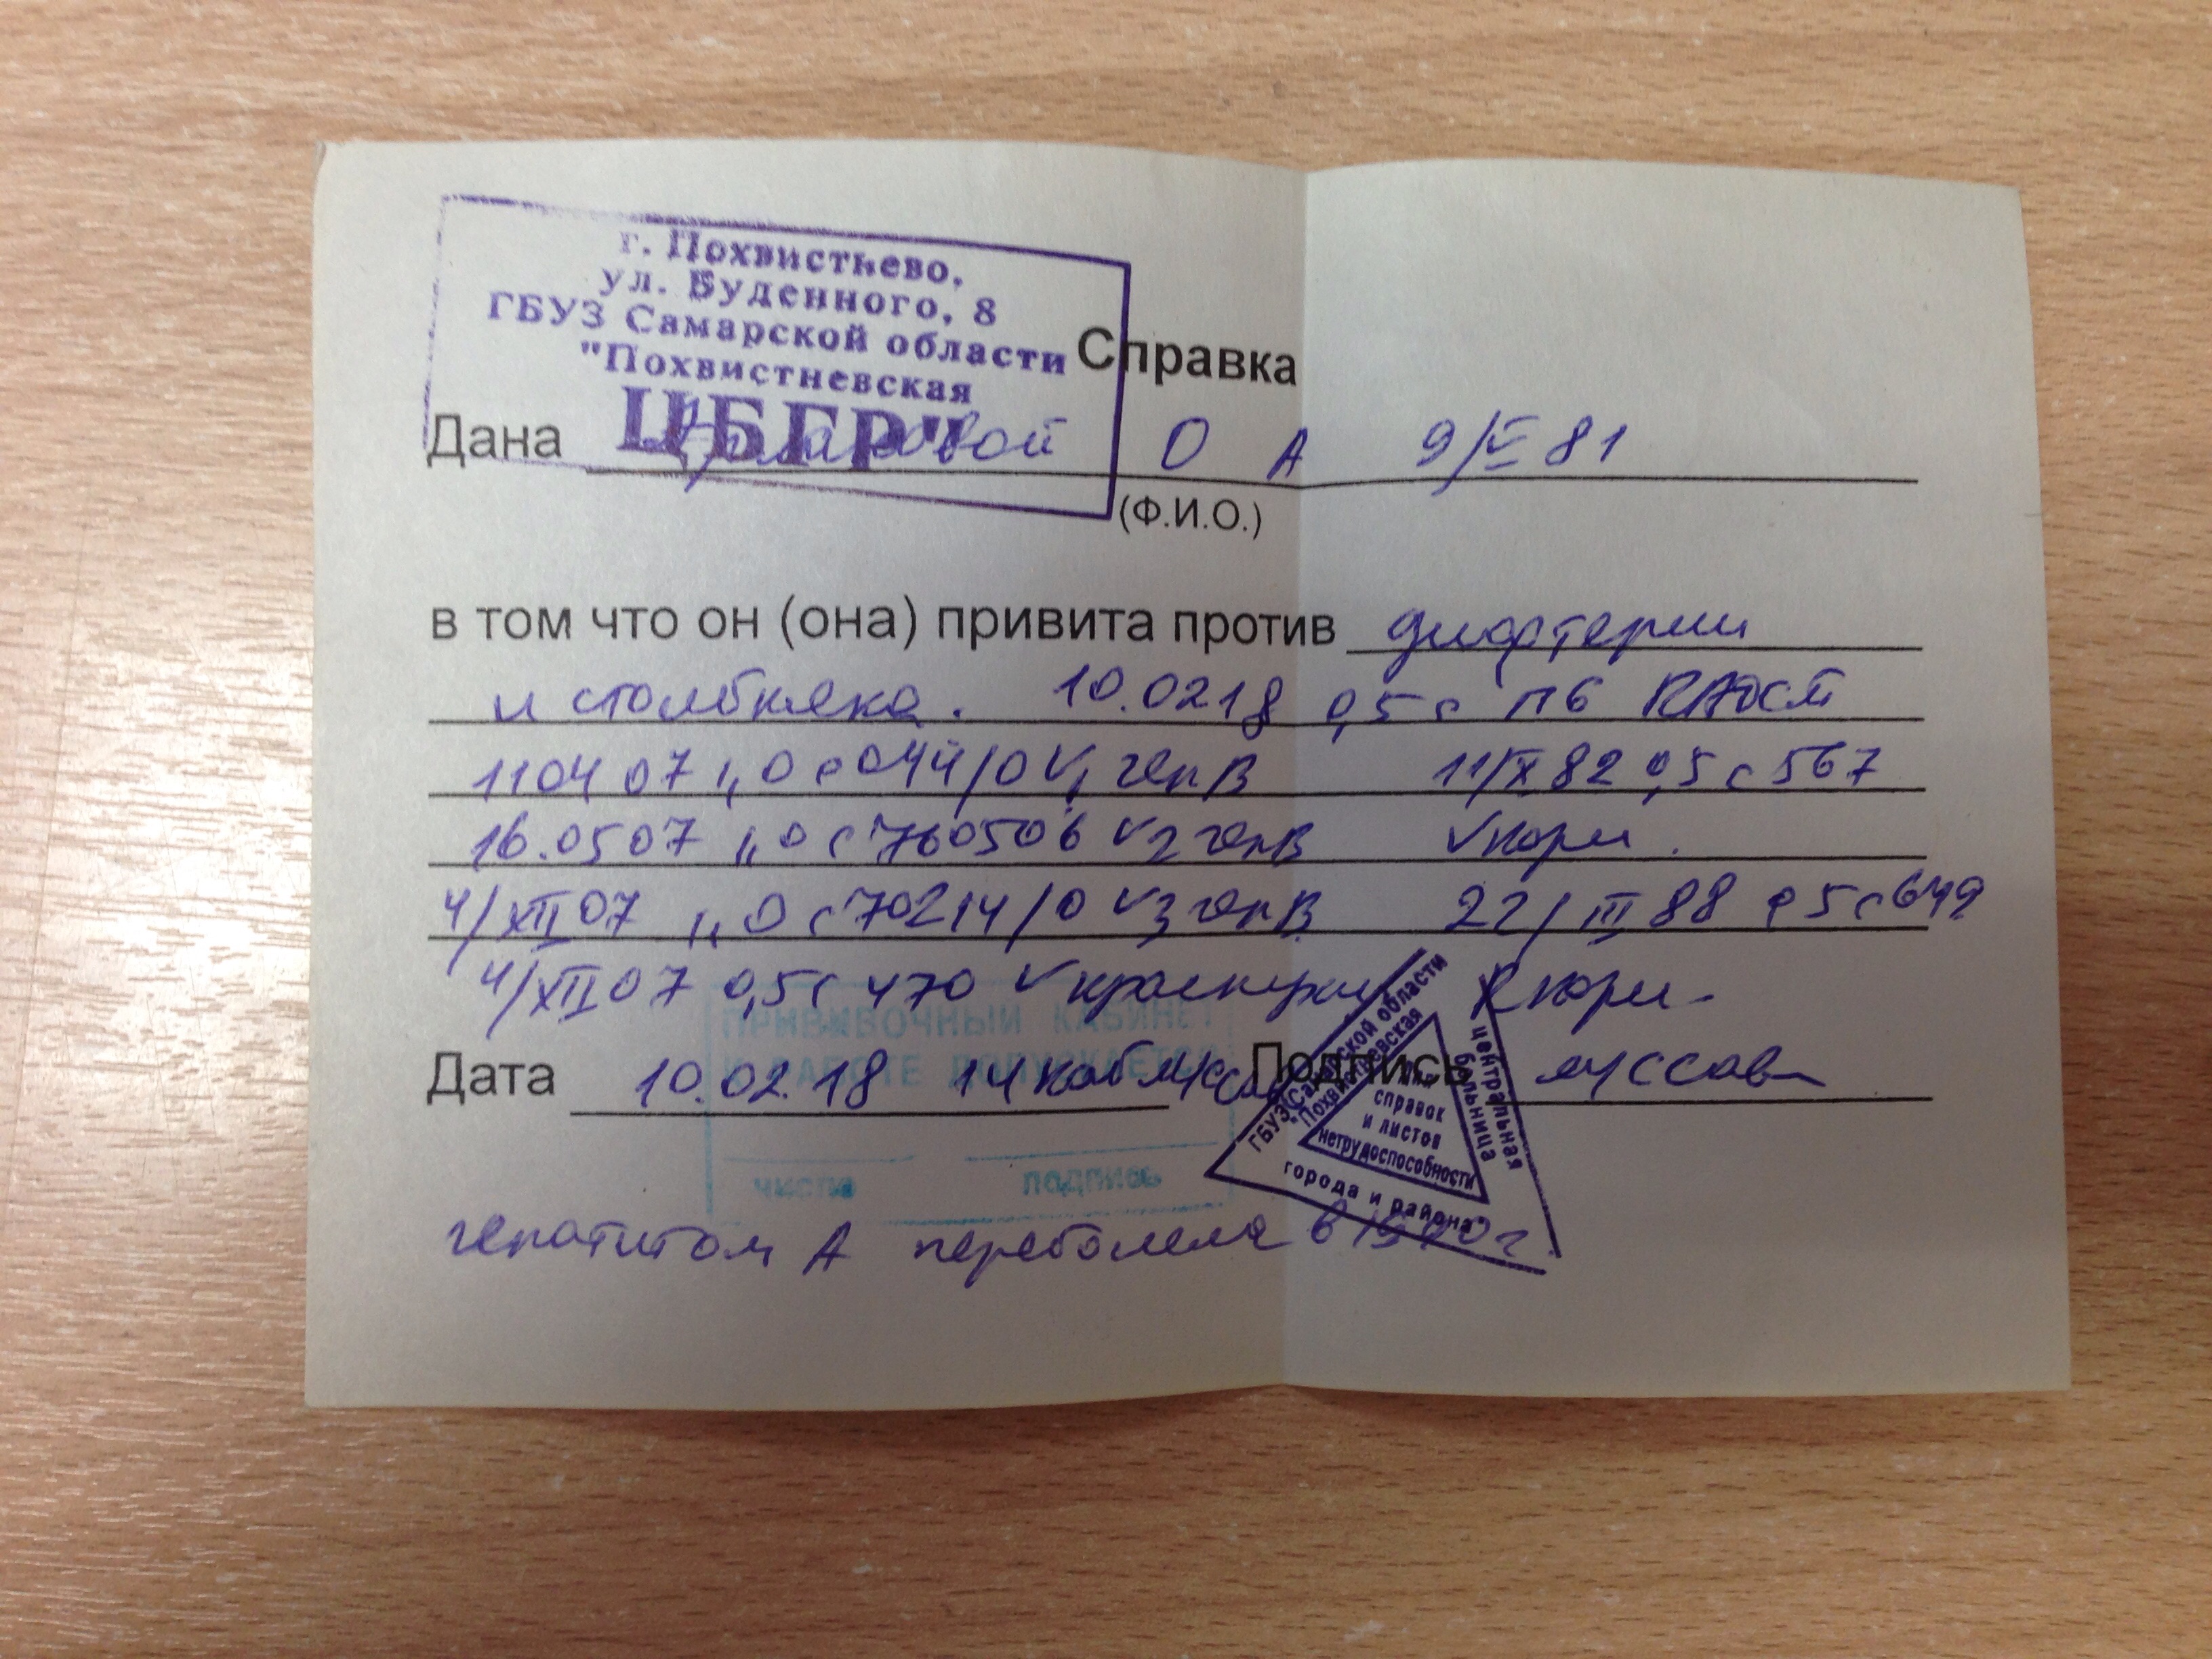 г. Похвистьево,
ул. Буденного, 8
ГБУЗ Самарской области
"Похвистневская
ЦБГР"
Справка
Дана О А 9/V 81
(Ф.И.О.)
в том что он (она) привита против дифтерии
и столбняка. 10.02 18 0,5 с П6 RАДСМ
11 04 07 1,0 с 044/0 V1 геп В 11/X 82 0,5 с 567
16.05 07 1,0 с 760506 V2 геп В V кори.
4/XII 07 1,0 с 70214/0 V3 геп В 22/III 88 0,5 с 649
4/XII 07 0,5 с 470 V краснухи R кори.
ПРИВИВОЧНЫЙ КАБИНЕТ
К РАБОТЕ ДОПУСКАЕТСЯ
Дата 10.02.18 14 каб Подпись
число подпись
ГБУЗ Самарской области
"Похвистневская
центральная
больница
города и района"
для
справок
и листов
нетрудоспособности
гепатитом А переболела в 1990 г